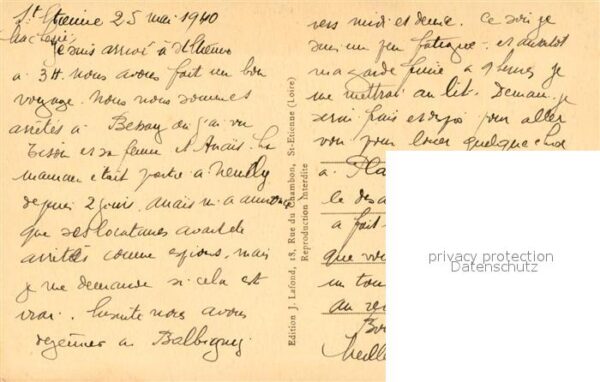 St Etienne 25 mai 1940
Je suis arrivé à St Etienne
a 3H. nous avons fait un bon
voyage. Nous nous sommes
arrêtés a Bessay ou j'ai vu
Tissier et sa femme et Anaïs. La
maman etait partie a Neuilly
depuis 2 jours. Anaïs m'a annoncé
que ses locataires avaient
arrêtés comme espions, mais
je me demande si cela est
vrai. Ensuite nous avons
dejeuner a Balbigny
vers midi et demie. Ce soir je
suis un peu fatigué et aussitot
ma garde finie a 9 heures je
me mettrai au lit. Demain je
serai frais et dispo pour aller
voir pour louer quelque chose
a
le
a fait
que vous
un tou
au re
Edition J. Lafond, 18, Rue du Chambon, St-Etienne (Loire)
Reproduction Interdite
privacy protection
Datenschutz